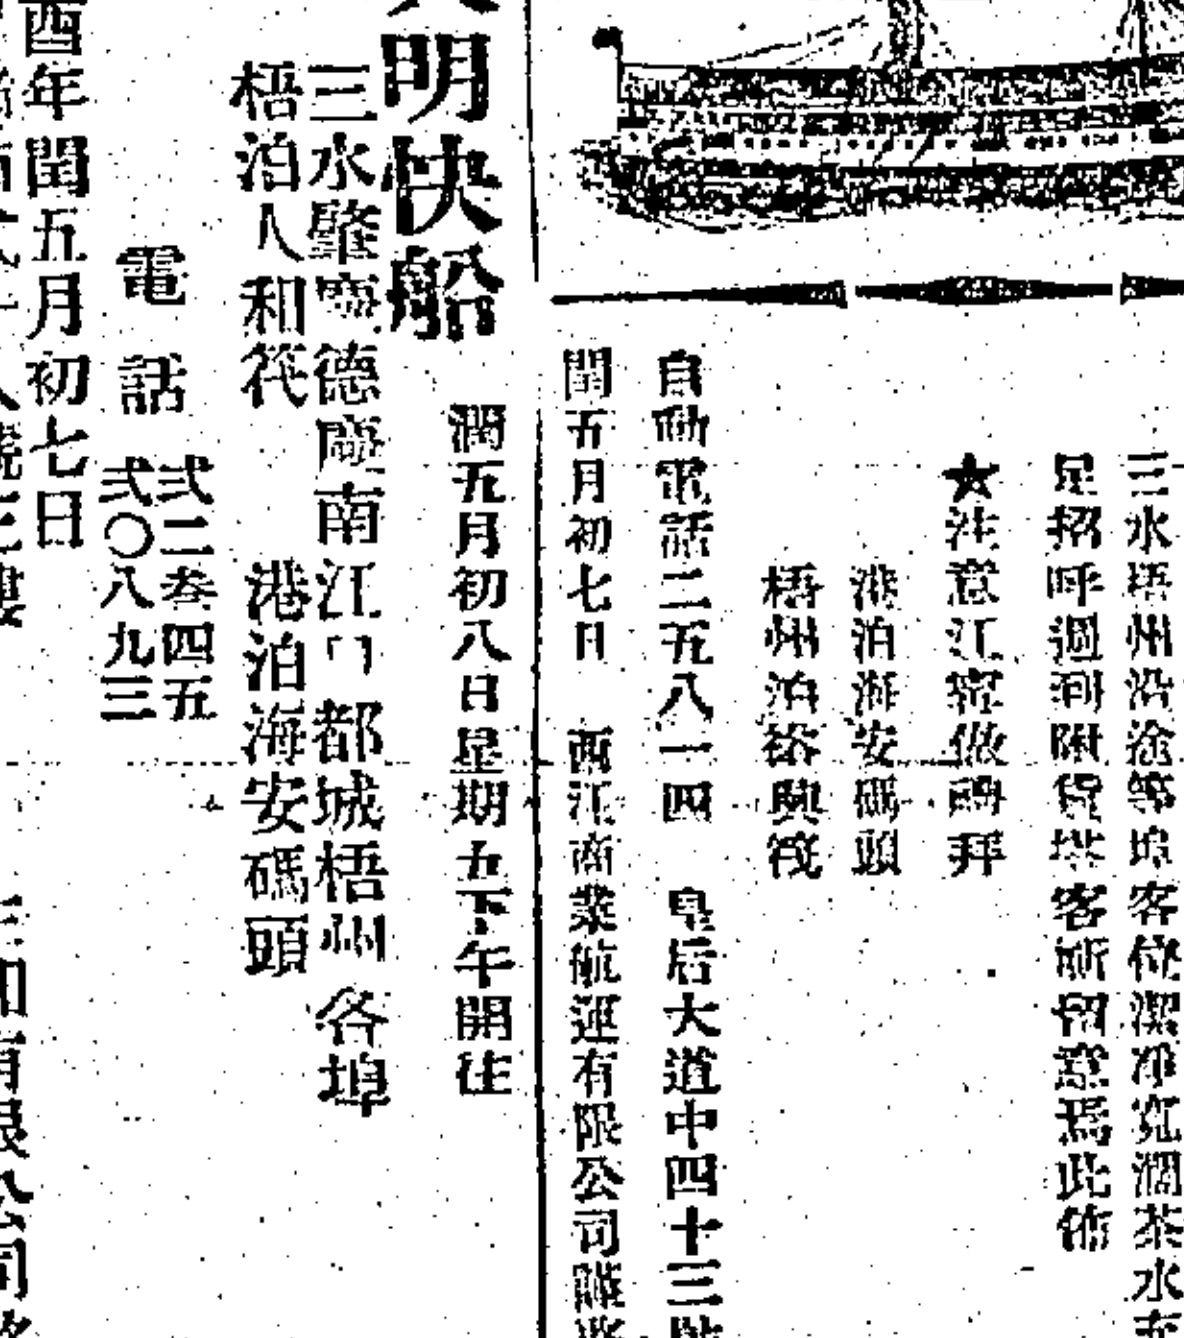 三水梧州沿途等埠客位潔净寬濶茶水
足招呼週到附貨搭客祈留意焉此佈
★注意江寧做禮拜
港泊海安碼頭
梧州泊裕興筏
自動電話二五八一四 皇后大道中四十三號
閏五月初七日 西江商業航運有限公司謹啓
明快船 潤五月初八日星期五下午開往
三水肇慶德慶南江口都城梧州各埠
梧泊人和筏 港泊海安碼頭
電話 弍二叁四五
弍〇八九三
酉年閏五月初七日
三和有限公司